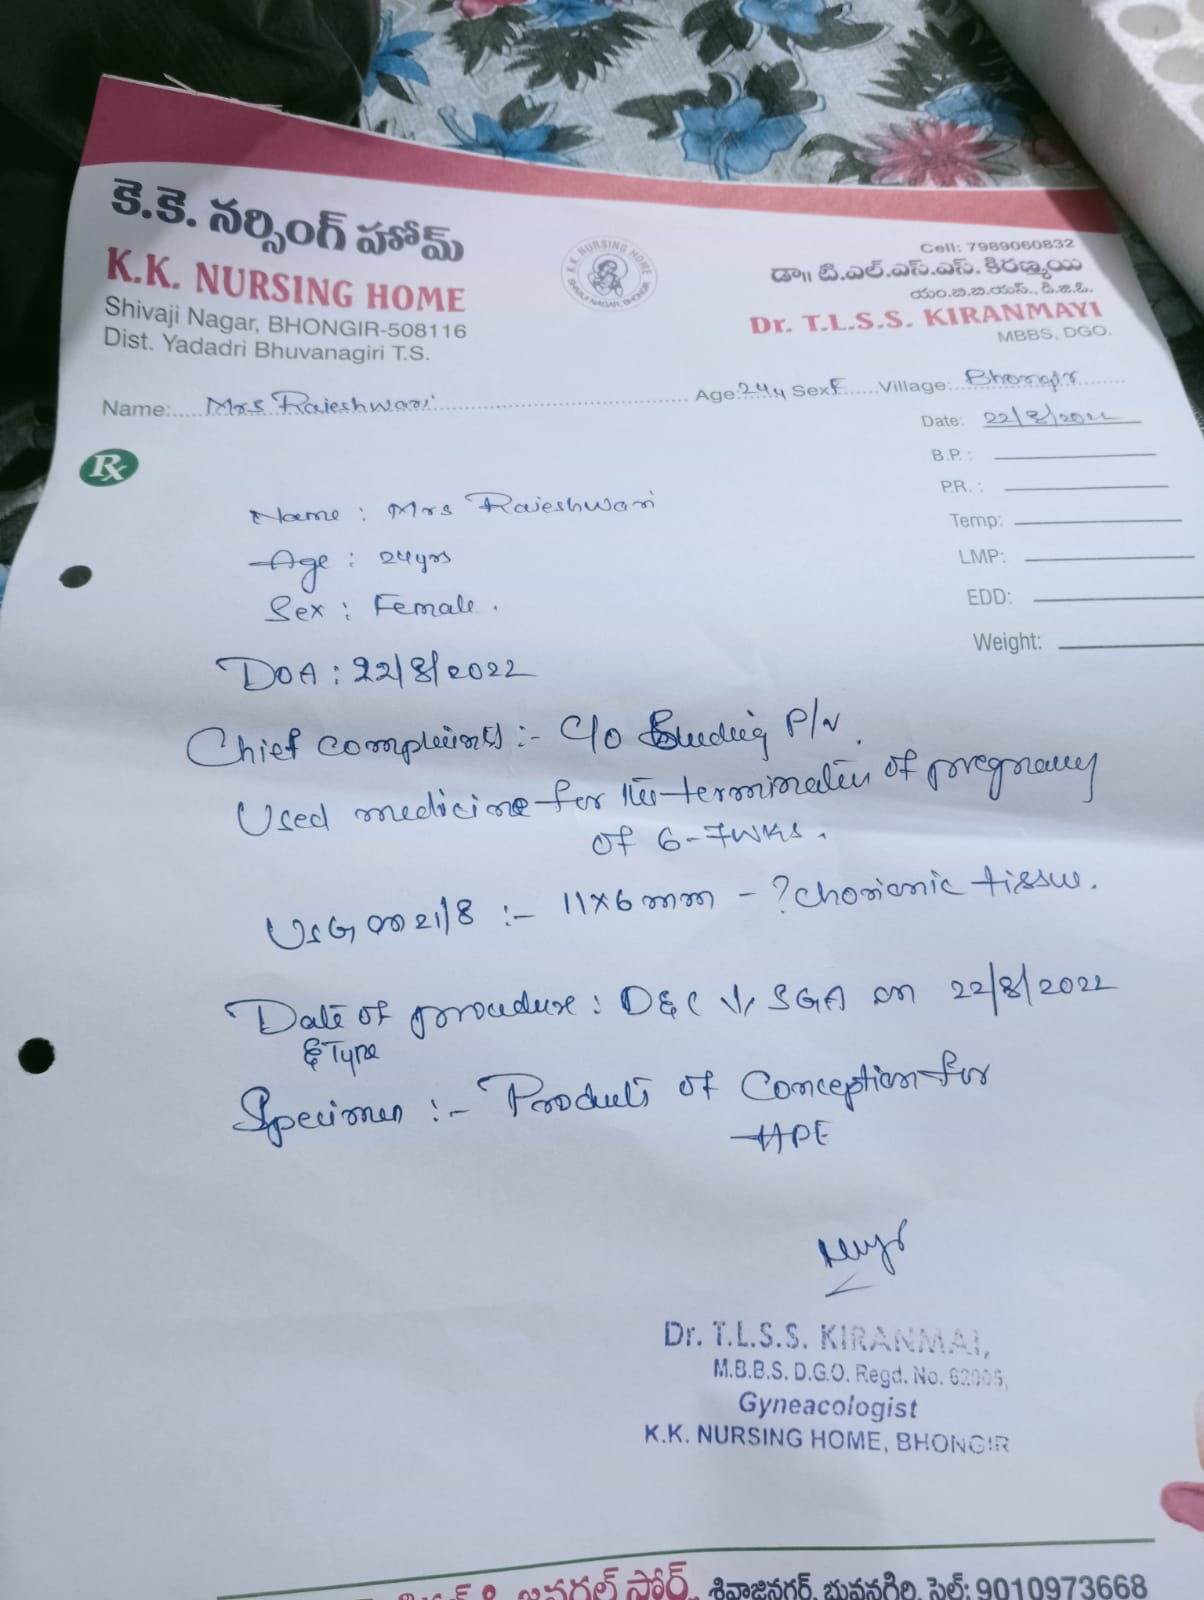 కె.కె. నర్సింగ్ హోమ్
K.K. NURSING HOME
Shivaji Nagar, BHONGIR-508116
Dist. Yadadri Bhuvanagiri T.S.
K.K. NURSING HOME
SHIVAJI NAGAR, BHONGIR
Cell: 7989060832
డా॥ టి.ఎల్.ఎస్.ఎస్. కిరణ్మయి
యం.బి.బి.యస్., డి.జి.ఓ.
Dr. T.L.S.S. KIRANMAYI
MBBS, DGO.
Name: Mrs Rajeshwari Age: 24y Sex F Village: Bhongir
Date: 22/8/2022
Rx
B.P. :
P.R. :
Temp:
LMP:
EDD:
Weight:
Name : Mrs Rajeshwari
Age : 24yrs
Sex : Female.
DOA : 22/8/2022
Chief complaints :- C/o Bleeding P/V.
Used medicine for termination of pregnancy
of 6-7wks.
USG on 21/8 :- 11x6mm - ?chorionic tissue.
Date of procedure : D&C SGA on 22/8/2022
& Type
Specimen :- Products of Conception for
HPE
Dr. T.L.S.S. KIRANMAI,
M.B.B.S. D.G.O. Regd. No. 62005,
Gyneacologist
K.K. NURSING HOME, BHONGIR
జనరల్ స్టోర్, శివాజీనగర్, భువనగిరి, సెల్: 9010973668